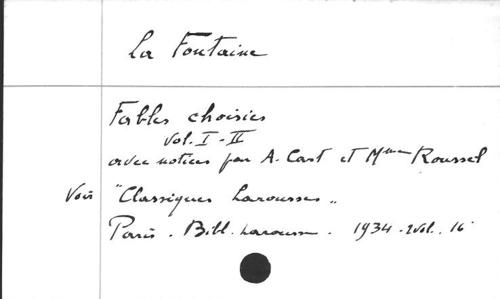 La Fontaine
Fables choisies
Vol. I - II
avec notices par A. Cart et Mme Roussel
Voir "Classiques Larousse"
Paris. Bibl. Larousse. 1934. 2vol. 16